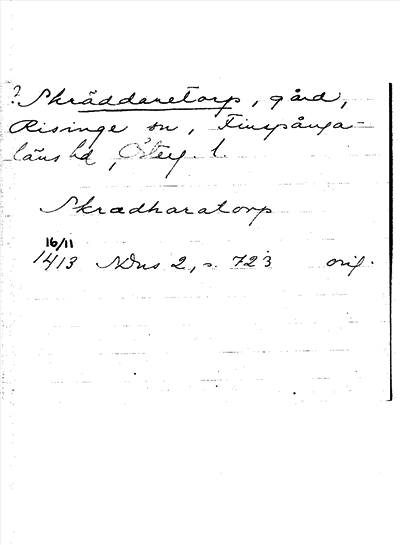 ? Skräddaretorp, gård,
Risinge sn, Finspånga-
läns hd, Östg. l.
Skrædharatorp
16/11
1413 NDns 2, s. 723 orig.